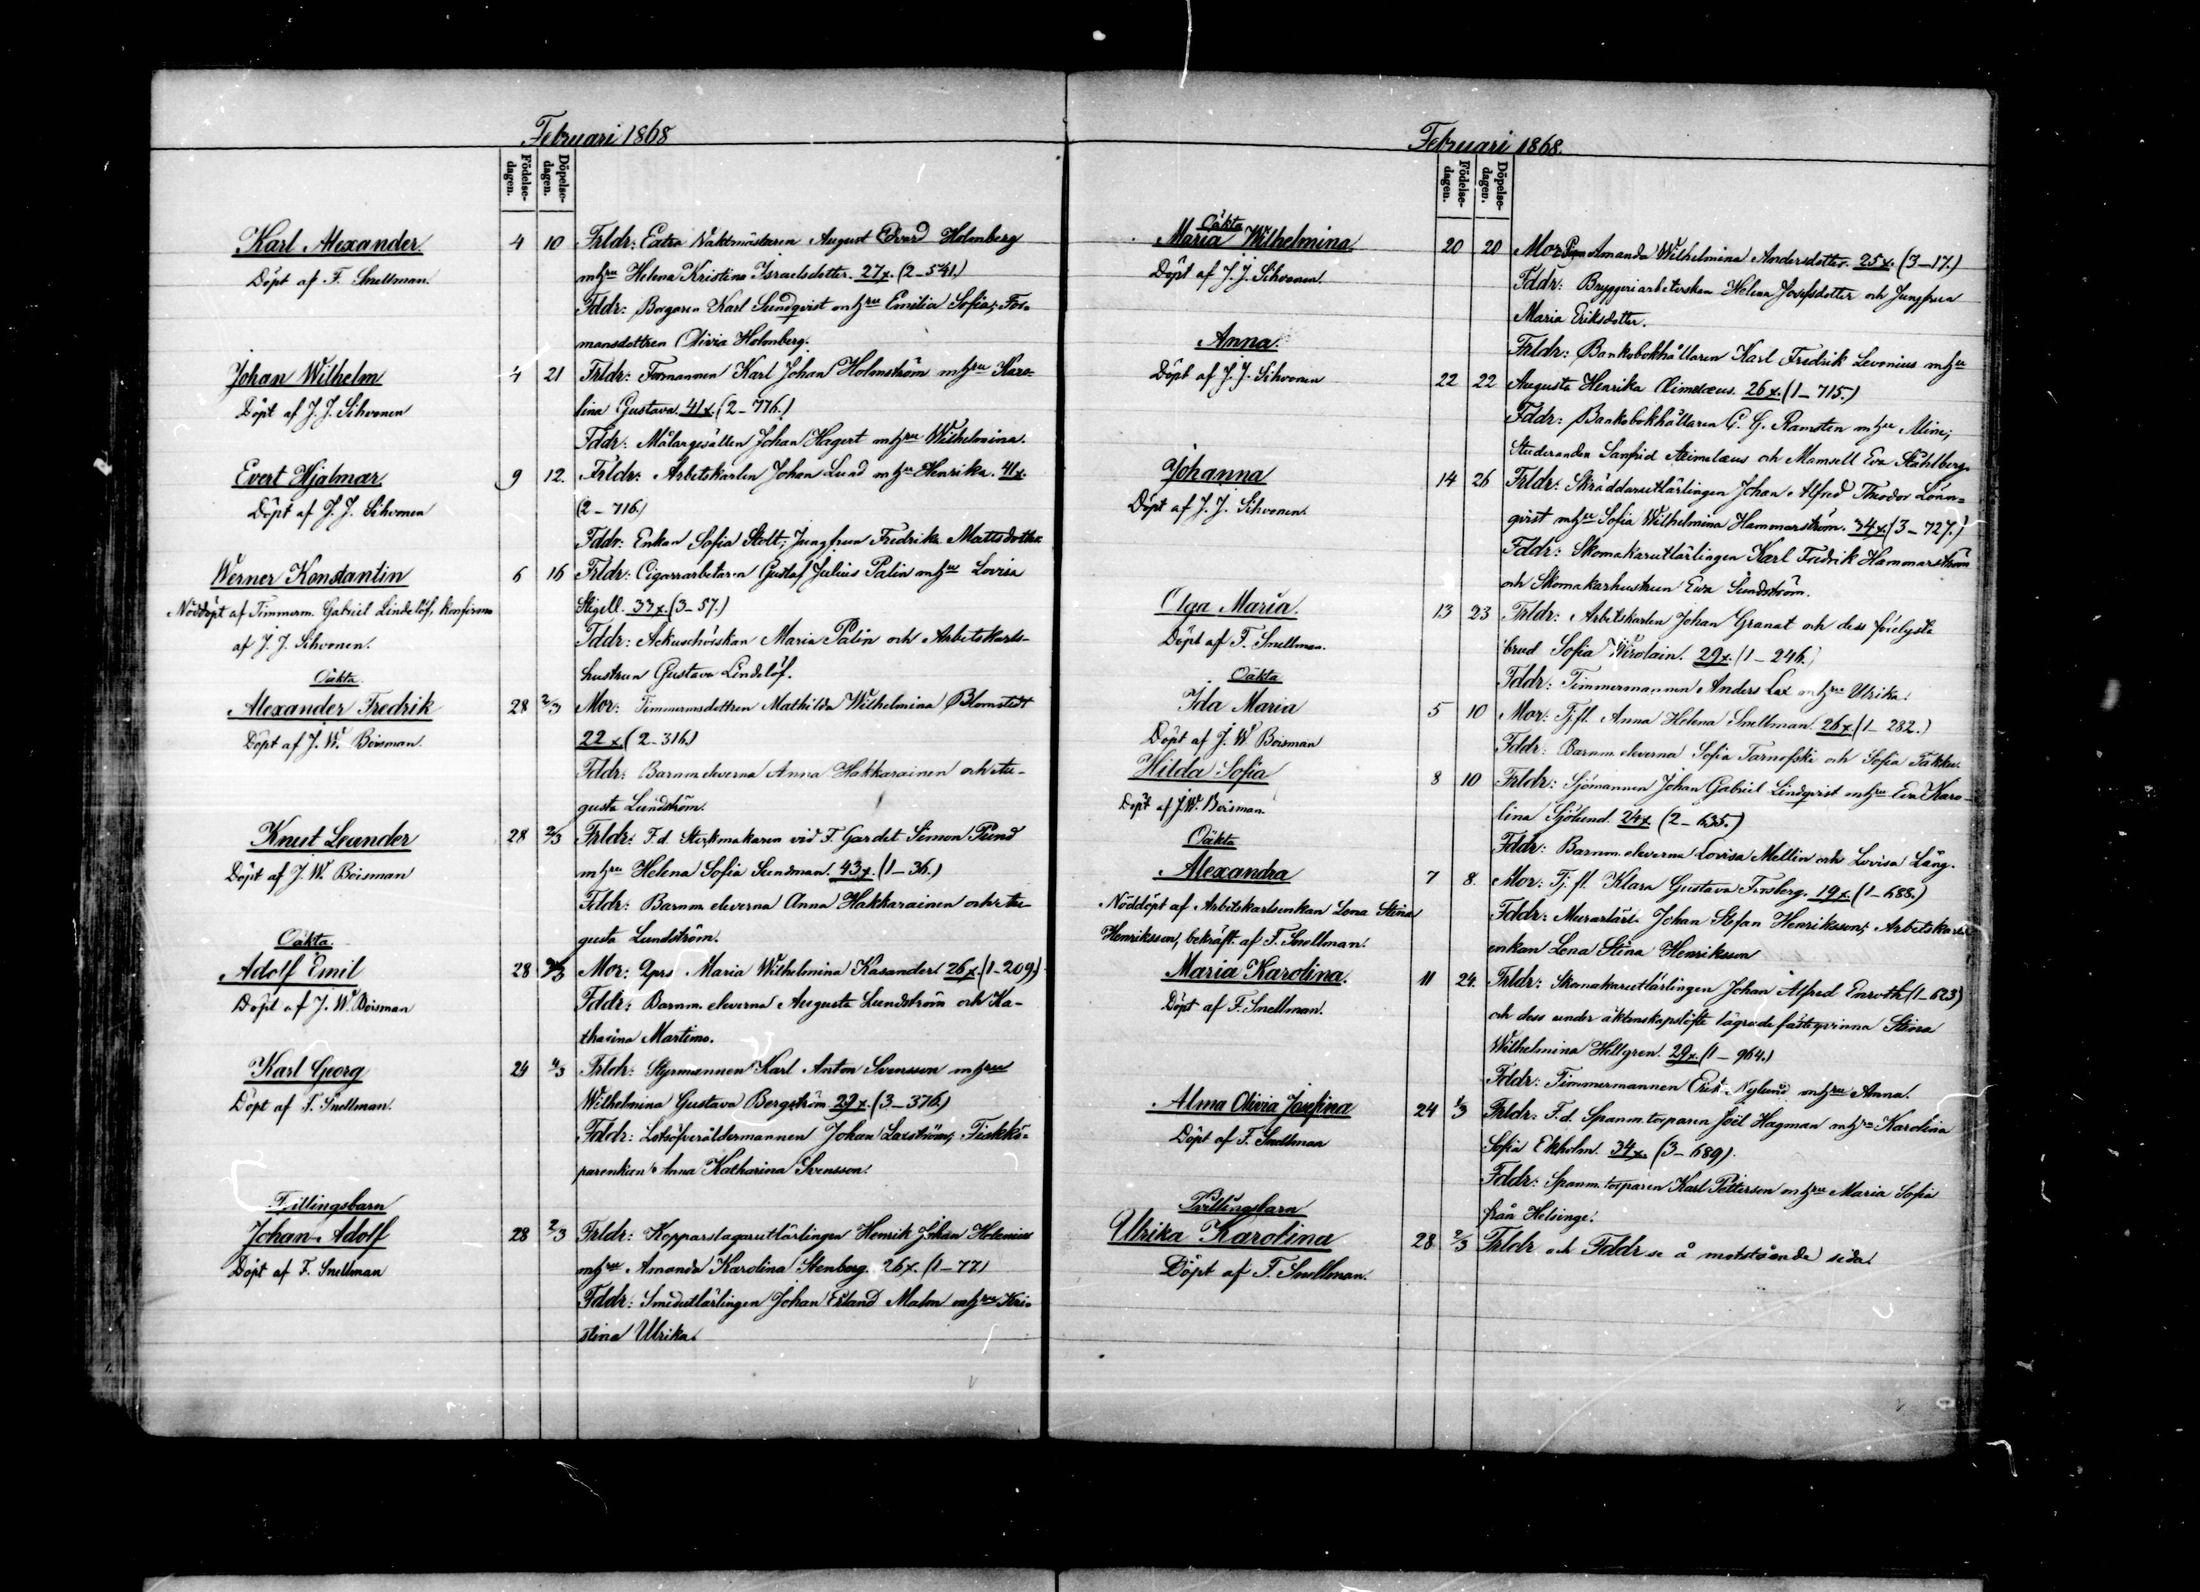 Februari 1868
Födelse-
dagen.
Döpelse-
dagen.
Karl Alexander
Döpt af F. Snellman.
4 10 Frldr: Extra Vaktmästaren August Edvard Holmberg
m hru Helena Kristina Israelsdotter. 27 x. (2–541.)
Fddr: Borgaren Karl Sundqvist m hru Emilia Sofia; For-
mansdottren Olivia Holmberg.
Johan Wilhelm
Döpt af J. J. Sihvonen
4 21 Frldr: Formannen Karl Johan Holmström m hru Karo-
lina Gustava. 41 x. (2–776.)
Fddr: Målargesällen Johan Hagert m hru Wilhelmina.
Evert Hjalmar
Döpt af J. J. Sihvonen
9 12. Frldr: Arbetskarlen Johan Lund m hru Henrika. 41 x.
(2–716.)
Fddr: Enkan Sofia Stolt; Jungfrun Fredrika Mattsdotter
Werner Konstantin
Nöddöpt af Timmerm. Gabriel Lindelöf, konfirm
af J. J. Sihvonen.
6 16 Frldr: Cigarrarbetaren Gustaf Julius Palin m hru Lovisa
Stigell. 33 x. (3–57.)
Fddr: Ackuschörskan Maria Palin och Arbetskarls-
hustrun Gustava Lindelöf.
Oäkta.
Alexander Fredrik
Döpt af J. W. Boisman.
28 2/3 Mor: Timmermsdottren Mathilda Wilhelmina Blomstedt
22 x. (2–316.)
Fddr: Barnm. eleverna Anna Hakkarainen och Au-
gusta Lundström.
Knut Leander
Döpt af J. W. Boisman
28 2/3 Frldr: F.d. Styckmakaren vid F. Gardet Simon Pund
m hru Helena Sofia Sundman. 43 x. (1–36.)
Fddr: Barnm. eleverna Anna Hakkarainen och Au-
gusta Lundström.
Oäkta.
Adolf Emil
Döpt af J. W. Boisman
28 2/3 Mor: Maria Wilhelmina Kasander. 26 x. (1–209.)
Fddr: Barnm. eleverna Augusta Lundström och Ka-
tharina Martimo.
Karl Georg
Döpt af F. Snellman.
24 4/3 Frldr: Styrmannen Karl Anton Svensson m hru
Wilhelmina Gustava Bergström. 29 x. (3–376.)
Fddr: Lotsöfveråldermannen Johan Laxström; Fiskkö-
parenkan Anna Katharina Svensson.
Tvillingsbarn
Johan Adolf
Döpt af F. Snellman
28 2/3 Frldr: Kopparslagareutlärlingen Henrik Johan Holenius
m hru Amanda Karolina Stenberg. 26 x. (1–77)
Fddr: Smedutlärlingen Johan Erland Malm m hru Kri-
stina Ulrika.
Februari 1868.
Födelse-
dagen.
Döpelse-
dagen.
Oäkta
Maria Wilhelmina
Döpt af J. J. Sihvonen.
20 20 Mor: Pign Amanda Wilhelmina Andersdotter. 25 x. (3–17.)
Fddr: Bryggeriarbeterskan Helena Josefsdotter och Jungfrun
Maria Eriksdotter.
Anna.
Döpt af J. J. Sihvonen
22 22 Frldr: Bankobokhållaren Karl Fredrik Levonius m hru
Augusta Henrika Aimelæus. 26 x. (1–715.)
Fddr: Bankobokhållaren C. G. Ramsten m hru Mina;
Studeranden Sanfrid Aimelæus och Mamsell Eva Ståhlberg.
Johanna
Döpt af J. J. Sihvonen.
14 26 Frldr: Skräddareutlärlingen Johan Alfred Theodor Lönn-
qvist m hru Sofia Wilhelmina Hammarström. 34 x. (3–727.)
Fddr: Skomakareutlärlingen Karl Fredrik Hammarström
och Skomakarhustrun Eva Sundström.
Olga Maria.
Döpt af F. Snellman.
13 23 Frldr: Arbetskarlen Johan Granat och dess förelysta
brud Sofia Wirolain. 29 x. (1–246.)
Fddr: Timmermannen Anders Lax m hru Ulrika.
Oäkta
Ida Maria
Döpt af J. W. Boisman
5 10 Mor: Tj.fl. Anna Helena Snellman. 26 x. (1–282.)
Fddr: Barnm. eleverna Sofia Tarnofski och Sofia Takku.
Hilda Sofia
Döpt af J. W. Boisman.
8 10 Frldr: Sjömannen Johan Gabriel Lindqvist m hru Eva Karo-
lina Sjölund. 24 x. (2–635.)
Fddr: Barnm. eleverna Lovisa Mellin och Lovisa Läng.
Oäkta
Alexandra
Nöddöpt af Arbetskarlsenkan Lena Stina
Henriksson, bekräft. af F. Snellman.
7 8. Mor: Tj.fl. Klara Gustava Forsberg. 19 x. (1–688.)
Fddr: Murarlärl. Johan Stefan Henriksson; Arbetskarls
enkan Lena Stina Henriksson
Maria Karolina.
Döpt af F. Snellman.
11 24. Frldr: Skomakareutlärlingen Johan Alfred Enroth (1–623)
och dess under äktenskapslöfte lägrade fästeqvinna Stina
Wilhelmina Hellgren. 29 x. (1–964.)
Fddr: Timmermannen Erik Nylund m hru Anna.
Alma Olivia Josefina
Döpt af F. Snellman
24 1/3 Frldr: F.d. Spanm. torparen Joël Hagman m hru Karolina
Sofia Ekholm. 34 x. (3–689).
Fddr: Spanm. torparen Karl Petterson m hru Maria Sofia
från Helsinge.
Tvillingsbarn
Ulrika Karolina.
Döpt af F. Snellman.
28 2/3 Frldr och Fddr se å motstående sida.